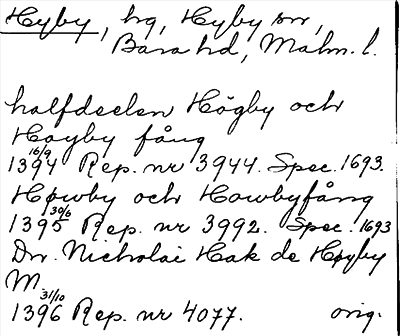 Hyby, hg, Hyby sn,
Bara hd, Malm. l.
halfdeelen Högby och
Høyby fång
16/9
1394 Rep. nr 3944. Spec. 1693.
Høwby och Howbyfång
30/6
1395 Rep. nr 3992. Spec. 1693
Dn. Nicholai Hak de Høyby
M
31/10
1396 Rep. nr 4077. orig.